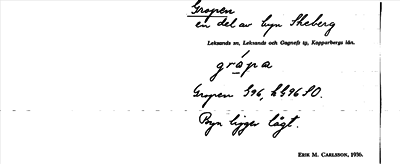 Gropen
en del av byn Skeberg
Leksands sn, Leksands och Gagnefs tg, Kopparbergs län.
gråpa
Gropen S96, LS96 SO.
Byn ligger lågt.
ERIK M. CARLSSON, 1936.